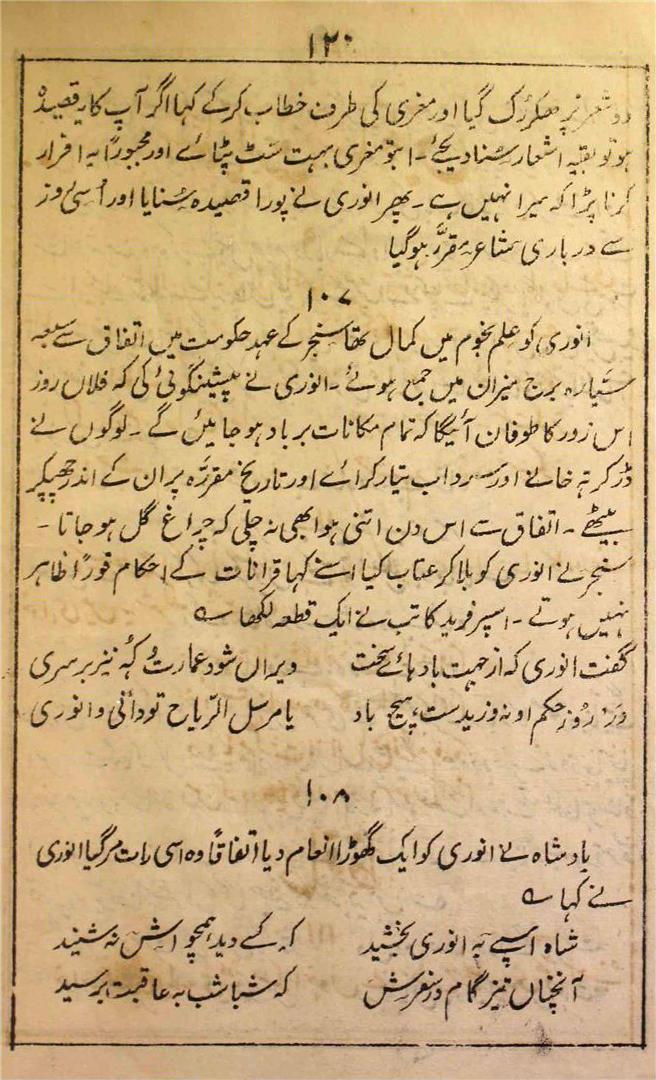 ۱۲۰
دو شعر پڑھکر رُک گیا اور مغری کی طرف خطاب کرکے کہا اگر آپ کا یہ قصیدہ
ہو تو بقیہ اشعار سُنا دیجئے۔ ابتو مغری بہت سَٹ پٹائے اور مجبوراً یہ اقرار
کرنا پڑا کہ میرا نہیں ہے۔ پھر انوری نے پورا قصیدہ سُنایا اور اُسی روز
سے درباری شاعر مقرّر ہوگیا
۱۰۷
انوری کو علم نجوم میں کمال تھا سنجر کے عہد حکومت میں اتفاق سے سبعہ
سَیّارہ برج میزان میں جمع ہوئے۔ انوری نے پیشینگوئی کی کہ فلاں روز
اس زور کا طوفان آئیگا کہ تمام مکانات برباد ہو جائیں گے۔ لوگوں نے
ڈر کر تہ خانے اور سرداب تیار کرائے اور تاریخ مقررّہ پر ان کے اندر چھپکر
بیٹھے۔ اتفاق سے اس دن اتنی ہوا بھی نہ چلی کہ چراغ گل ہو جاتا۔
سنجر نے انوری کو بلا کر عتاب کیا اسنے کہا قرانات کے احکام فوراً ظاہر
نہیں ہوتے۔ اسپر فرید کاتب نے ایک قطعہ لکھا ؎
گفت انوری کہ از جہت بادہائے سخت ویراں شود عمارت و کُہ نیز بر سری
در روز حکم او نہ وزیدست ہیچ باد یا مرسل الرّیاح تو دانی و انوری
۱۰۸
بادشاہ نے انوری کو ایک گھوڑا انعام دیا اتفاقاً وہ اسی رات مرگیا انوری
نے کہا ؎
شاہ اسپے بہ انوری بخشید کہ کسے دید ہمچو اش نہ شنید
آنچناں تیز گام در سفرش کہ شباشب بہ عاقبت برسید